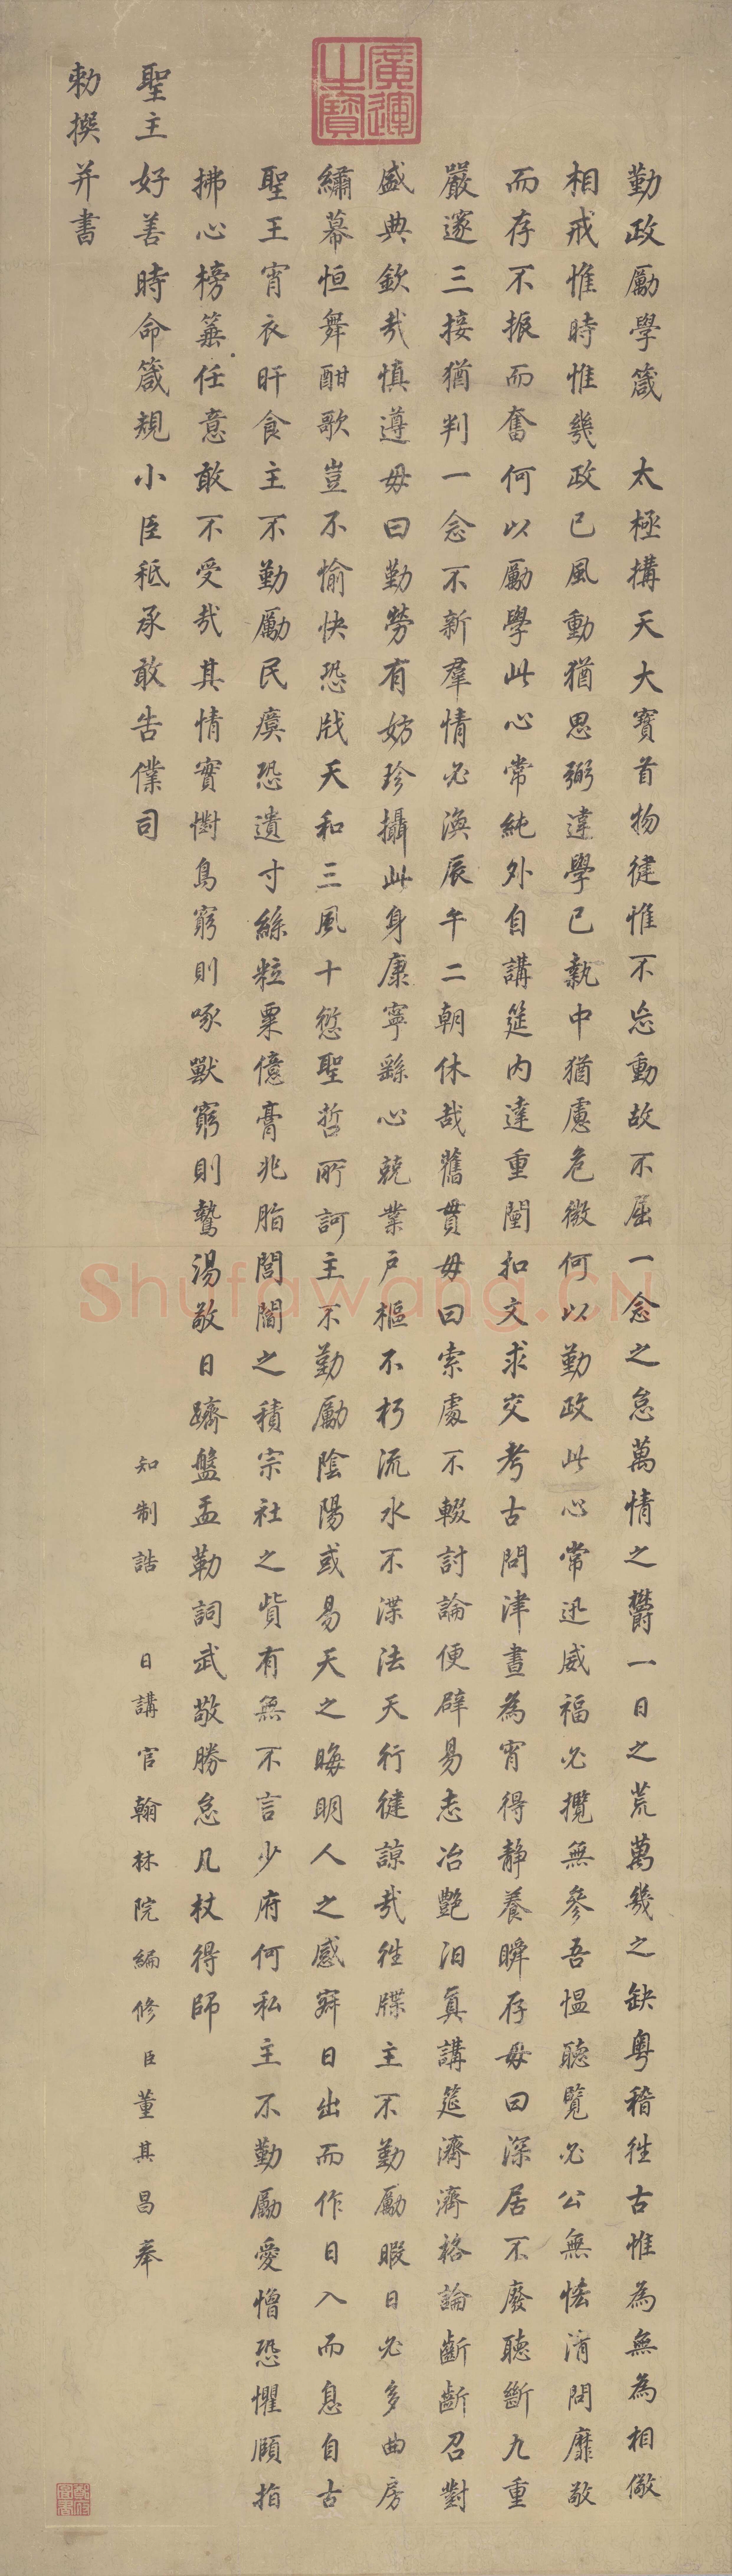 廣運之寶
勤政勵學箴 太極構天大寶首物健惟不忘動故不屈一念之怠萬情之鬱一日之荒萬幾之缺粵稽往古惟為無為相儆
相戒惟時惟幾政已風動猶思弼違學已執中猶慮危微何以勤政此心常迅威福必攬無參吾慍聽覽必公無恡清問靡敢
而存不振而奮何以勵學此心常純外自講筵內達重闈扣文求交考古問津晝為宵得靜養瞬存毋曰深居不廢聽斷九重
嚴邃三接猶判一念不新羣情必渙辰午二朝休哉舊貫毋曰索處不輟討論便辟易志冶艷汩真講筵濟濟格論齗齗召對
盛典欽哉慎遵毋曰勤勞有妨珍攝此身康寧繇心兢業戶樞不朽流水不渫法天行健諒哉往牒主不勤勵暇日必多曲房
繡幕恒舞酣歌豈不愉快恐戕天和三風十愆聖哲所訶主不勤勵陰陽或易天之晦明人之感寤日出而作日入而息自古
聖王宵衣旰食主不勤勵民瘼恐遺寸絲粒粟億膏兆脂閭閻之積宗社之貲有無不言少府何私主不勤勵愛憎恐懼頤指
拂心榜箠任意敢不受哉其情實懟鳥窮則啄獸窮則鷙湯敬日躋盤盂勒詞武敬勝怠几杖得師
聖主好善時命箴規小臣秪承敢告僕司
知制誥 日講官翰林院編修臣董其昌奉
勑撰并書
Shufawang.CN